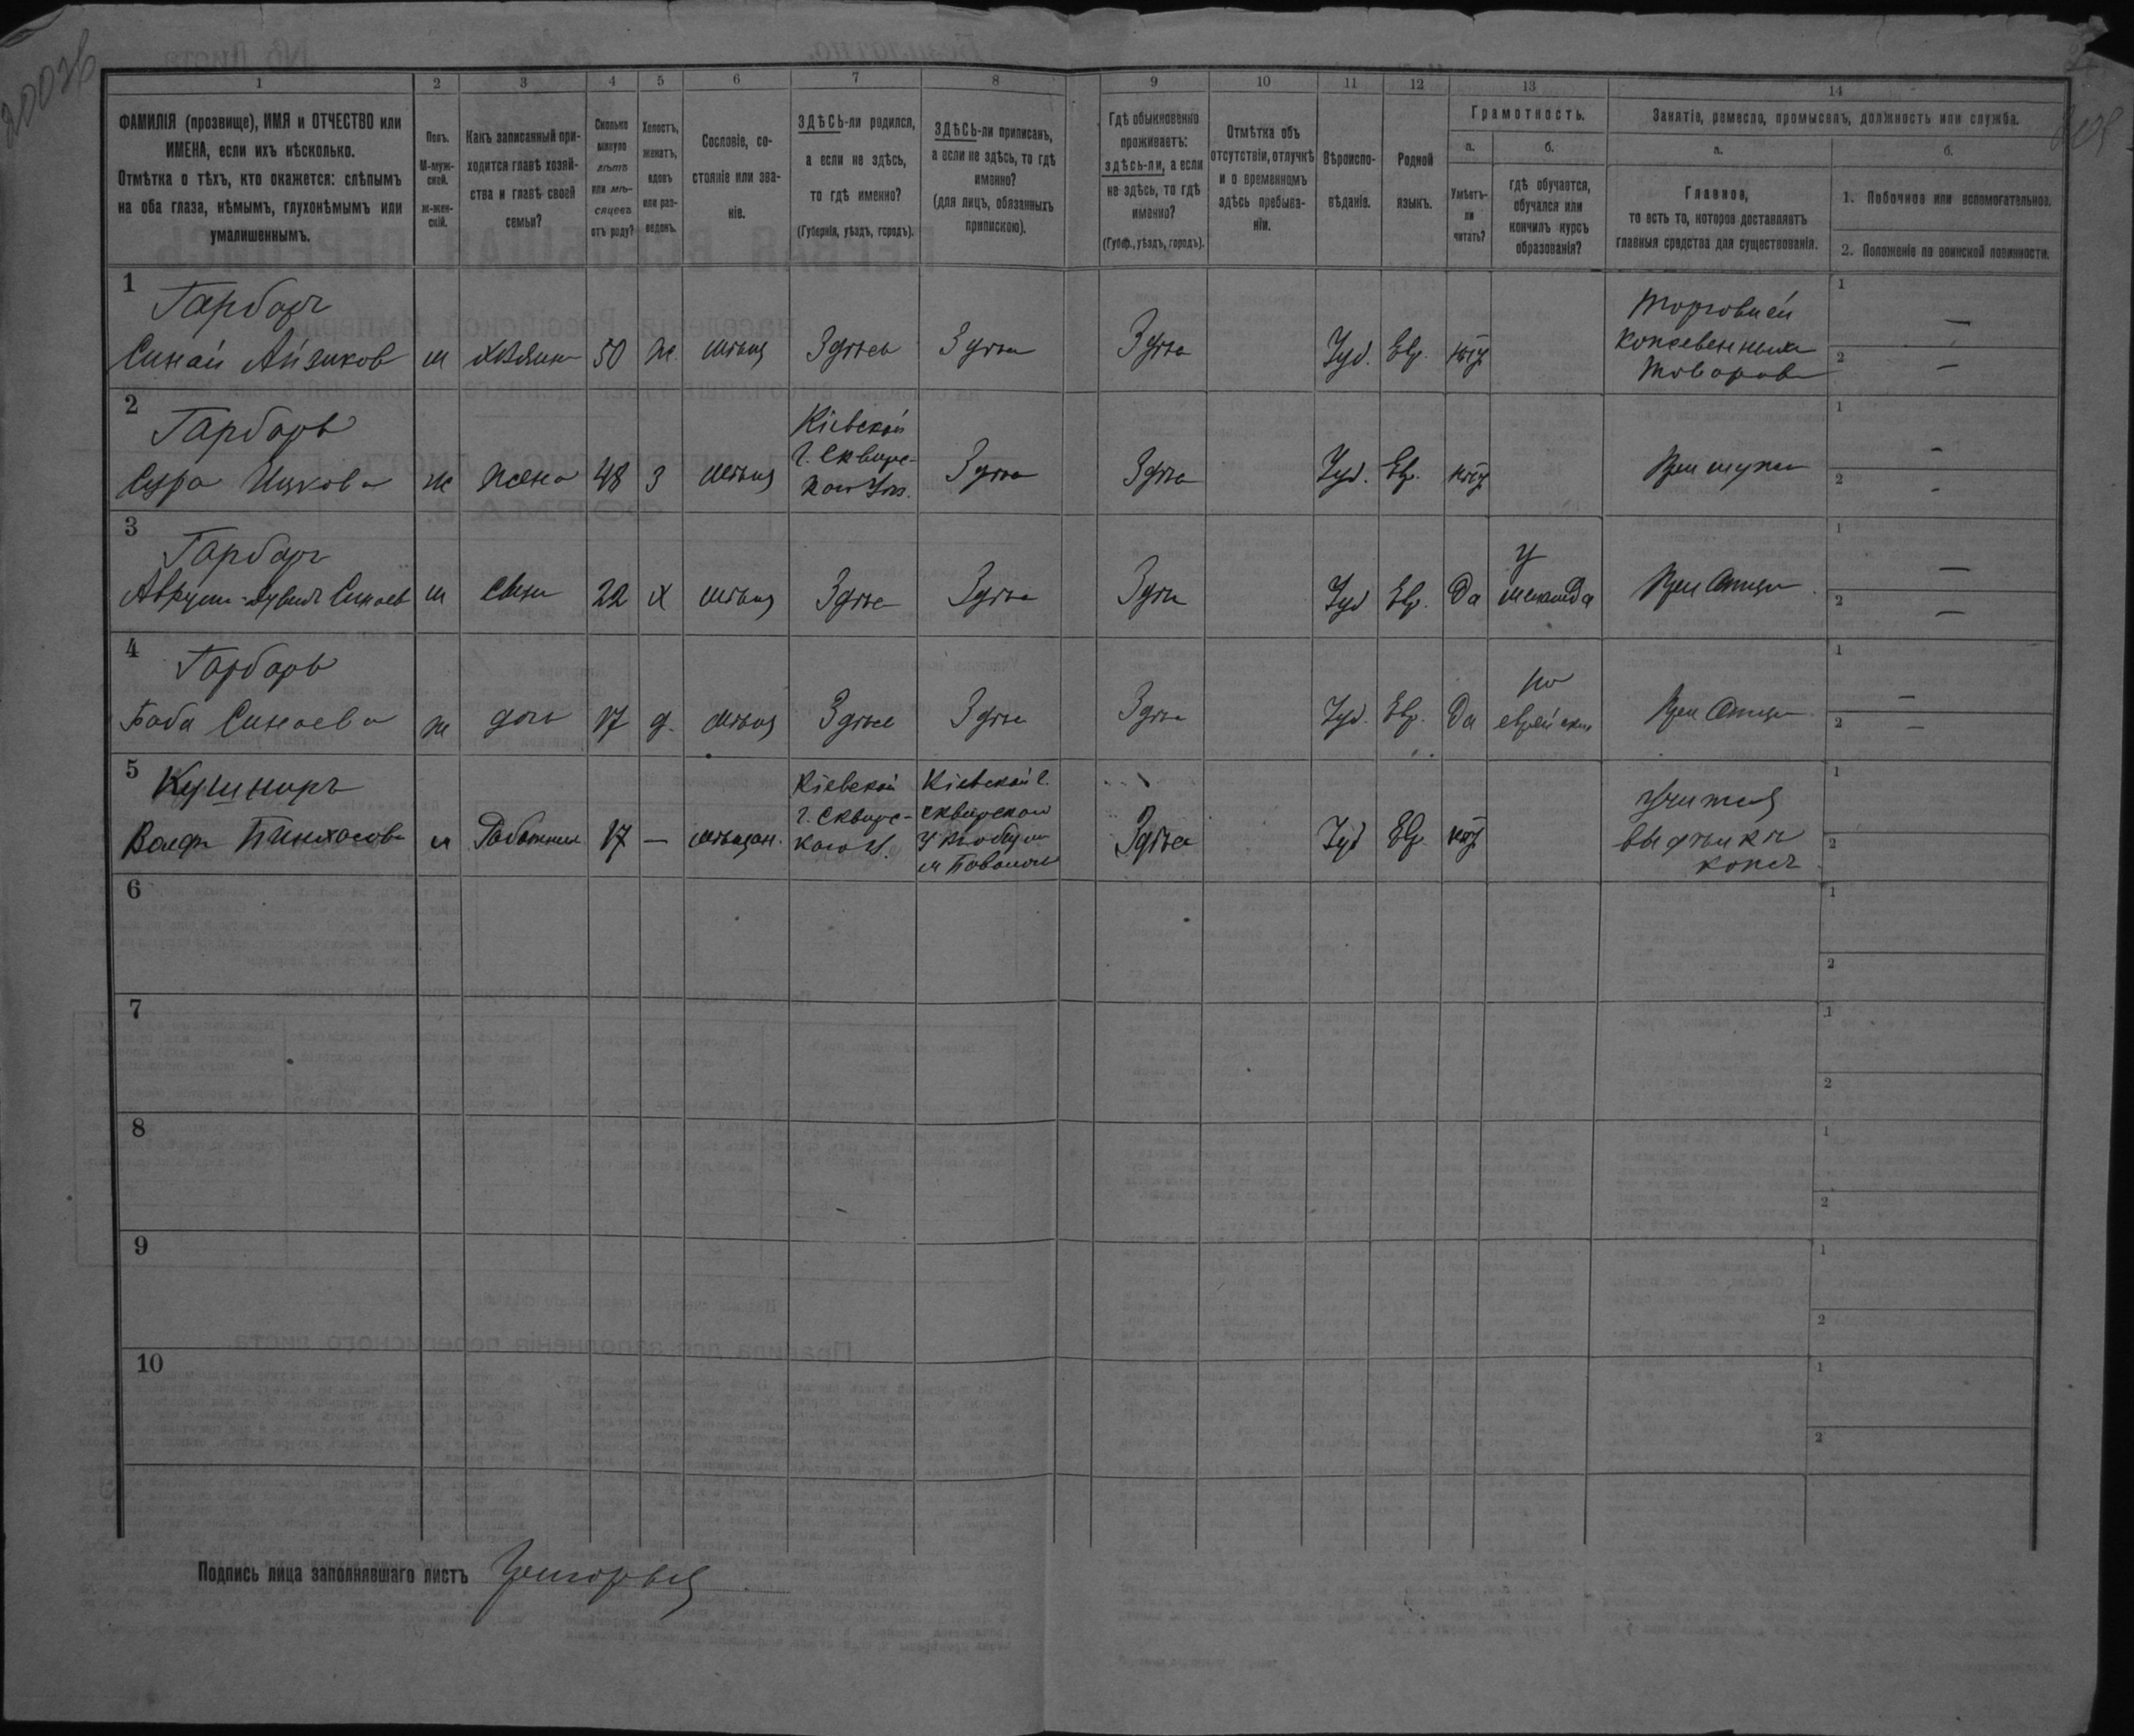 1
2
3
4
5
6
7
8
9
10
11
12
13
14
ФАМИЛІЯ (прозвище), ИМЯ и ОТЧЕСТВО или
ИМЕНА, если ихъ нѣсколько.
Отмѣтка о тѣхъ, кто окажется: слѣпымъ
на оба глаза, нѣмымъ, глухонѣмымъ или
умалишеннымъ.
Полъ.
М-муж-
ской.
Ж-жен-
скій.
Какъ записанный при-
ходится главѣ хозяй-
ства и главѣ своей
семьи?
Сколько
минуло
лѣтъ
или мѣ-
сяцевъ
отъ роду?
Холостъ,
женатъ,
вдовъ
или раз-
веденъ.
Сословіе, со-
стояніе или зва-
ніе.
ЗДѢСЬ-ли родился,
а если не здѣсь,
то гдѣ именно?
(Губернія, уѣздъ, городъ).
ЗДѢСЬ-ли приписанъ,
а если не здѣсь, то гдѣ
именно?
(для лицъ, обязанныхъ
припискою).
Гдѣ обыкновенно
проживаетъ:
здѣсь-ли, а если
не здѣсь, то гдѣ
именно?
(Губер., уѣздъ, городъ).
Отмѣтка объ
отсутствіи, отлучкѣ
и о временномъ
здѣсь пребыва-
ніи.
Вѣроиспо-
вѣданіе.
Родной
языкъ.
Грамотность.
а.
Умѣетъ-
ли
читать?
б.
гдѣ обучается,
обучался или
кончилъ курсъ
образованія?
Занятіе, ремесло, промыселъ, должность или служба.
а.
Главное,
то есть то, которое доставляетъ
главныя средства для существованія.
б.
1. Побочное или вспомогательное.
2. Положеніе по воинской повинности.
1
Гарбаръ
Синай Айзиков
м хозяин 50 ж. мѣщ Здѣсь Здѣсь
Здѣсь Іуд. Евр. нѣт
Торговлей
кожевенными
товарами
1 —
2 —
2
Гарбаръ
Сура Ицкова
ж жена 48 З мѣщ
Кіевской
г. Сквирс-
каго Уѣз.
Здѣсь
Здѣсь Іуд. Евр. нѣт При мужѣ
1 -
2 -
3
Гарбаръ
Аврум-Дувидъ Синаев
м сын 22 Х мѣщ Здѣсь Здѣсь
Здѣсь Іуд Евр. Да
у
меламда
При Отцѣ
1 —
2 —
4
Гарбаръ
Баба Синаева
ж дочь 17 д. мѣщ Здѣсь Здѣсь
Здѣсь Іуд. Евр. Да
по
еврейски
При Отцѣ
1 —
2 —
5
Кушниръ
Волфъ Пинхасовъ
м Работник 17 — мѣщан.
Кіевской
г. Сквирс-
каго У.
Кіевской г.
Сквирскаго
м Паволочь
Здѣсь Іуд Евр нѣт
Учится
выдѣлки
кожъ
1
2
6
1
2
7
1
2
8
1
2
9
1
2
10
1
2
Подпись лица заполнявшаго листъ